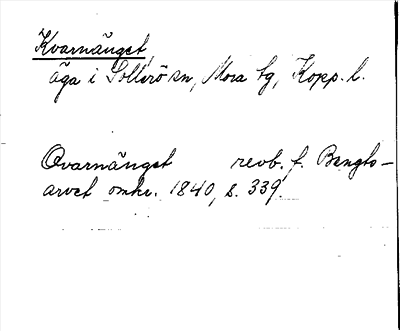 Kvarnänget,
äga i Sollerö sn, Mora tg, Kopp. l.
Qvarnänget revb. f. Bengts-
arvet omkr. 1840, s. 339.